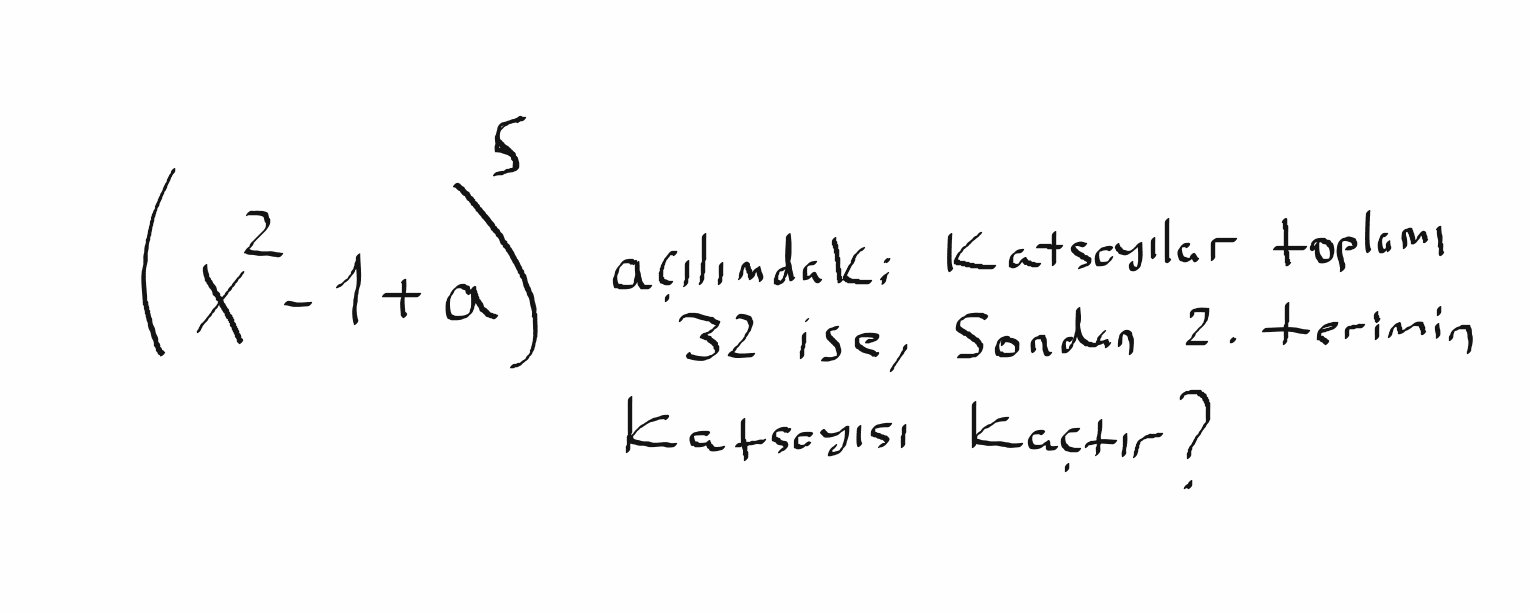 (x²-1+a)⁵ açılımdaki Katsayılar toplamı
32 ise, Sondan 2. terimin
Katsayısı Kaçtır?